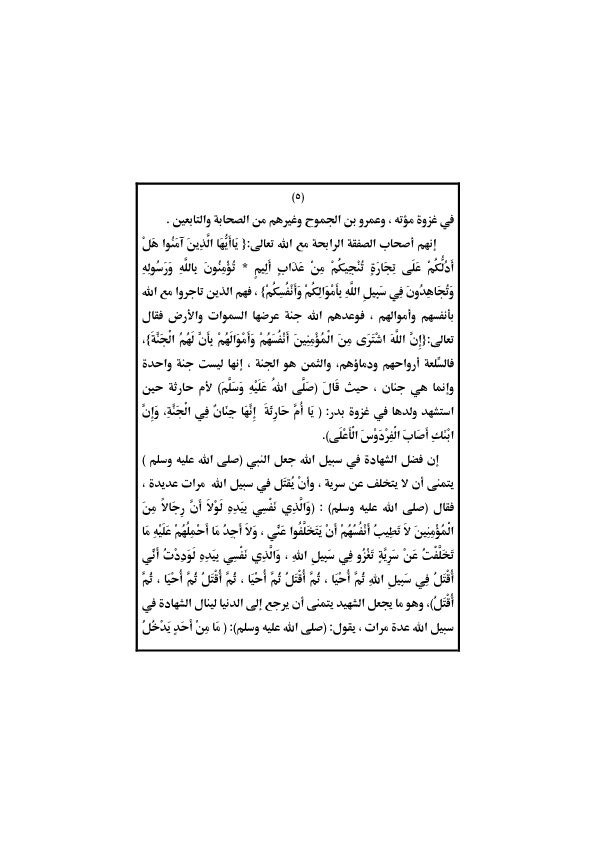 (٥)
في غزوة مؤته ، وعمرو بن الجموح وغيرهم من الصحابة والتابعين .
إنهم أصحاب الصفقة الرابحة مع الله تعالى:{ يَاأَيُّهَا الَّذِينَ آمَنُوا هَلْ
أَدُلُّكُمْ عَلَى تِجَارَةٍ تُنْجِيكُمْ مِنْ عَذَابٍ أَلِيمٍ * تُؤْمِنُونَ بِاللَّهِ وَرَسُولِهِ
وَتُجَاهِدُونَ فِي سَبِيلِ اللَّهِ بِأَمْوَالِكُمْ وَأَنْفُسِكُمْ} ، فهم الذين تاجروا مع الله
بأنفسهم وأموالهم ، فوعدهم الله جنة عرضها السموات والأرض فقال
تعالى:{إِنَّ اللَّهَ اشْتَرَى مِنَ الْمُؤْمِنِينَ أَنْفُسَهُمْ وَأَمْوَالَهُمْ بِأَنَّ لَهُمُ الْجَنَّةَ}،
فالسِّلعة أرواحهم ودماؤهم، والثمن هو الجنة ، إنها ليست جنة واحدة
وإنما هي جنان ، حيث قَالَ (صَلَّى اللهُ عَلَيْهِ وَسَلَّمَ) لأم حارثة حين
استشهد ولدها في غزوة بدر: ( يَا أُمَّ حَارِثَةَ إِنَّهَا جِنَانٌ فِي الْجَنَّةِ، وَإِنَّ
ابْنَكِ أَصَابَ الْفِرْدَوْسَ الْأَعْلَى).
إن فضل الشهادة في سبيل الله جعل النبي (صلى الله عليه وسلم )
يتمنى أن لا يتخلف عن سرية ، وأنْ يُقتَل في سبيل الله مرات عديدة ،
فقال (صلى الله عليه وسلم) : (وَالَّذِي نَفْسِي بِيَدِهِ لَوْلاَ أَنَّ رِجَالاً مِنَ
الْمُؤْمِنِينَ لاَ تَطِيبُ أَنْفُسُهُمْ أَنْ يَتَخَلَّفُوا عَنِّي ، وَلاَ أَجِدُ مَا أَحْمِلُهُمْ عَلَيْهِ مَا
تَخَلَّفْتُ عَنْ سَرِيَّةٍ تَغْزُو فِي سَبِيلِ اللهِ ، وَالَّذِي نَفْسِي بِيَدِهِ لَوَدِدْتُ أَنِّي
أُقْتَلُ فِي سَبِيلِ اللهِ ثُمَّ أُحْيَا ، ثُمَّ أُقْتَلُ ثُمَّ أُحْيَا ، ثُمَّ أُقْتَلُ ثُمَّ أُحْيَا ، ثُمَّ
أُقْتَلُ)، وهو ما يجعل الشهيد يتمنى أن يرجع إلى الدنيا لينال الشهادة في
سبيل الله عدة مرات ، يقول: (صلى الله عليه وسلم): ( مَا مِنْ أَحَدٍ يَدْخُلُ